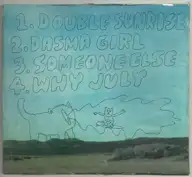 1. DOUBLE SUNRISE
2. DASMA GIRL
3. SOMEONE ELSE
4. WHY JULY